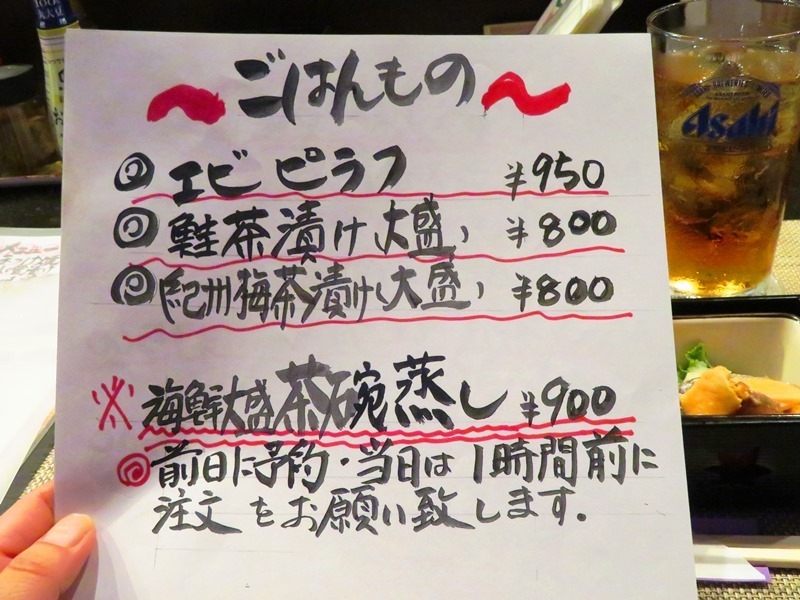 ～ごはんもの～
◎エビピラフ ¥950
◎鮭茶漬け(大盛) ¥800
◎紀州梅茶漬け(大盛) ¥800
※海鮮大盛茶碗蒸し ¥900
◎前日に予約・当日は1時間前に
注文をお願い致します.
Asahi